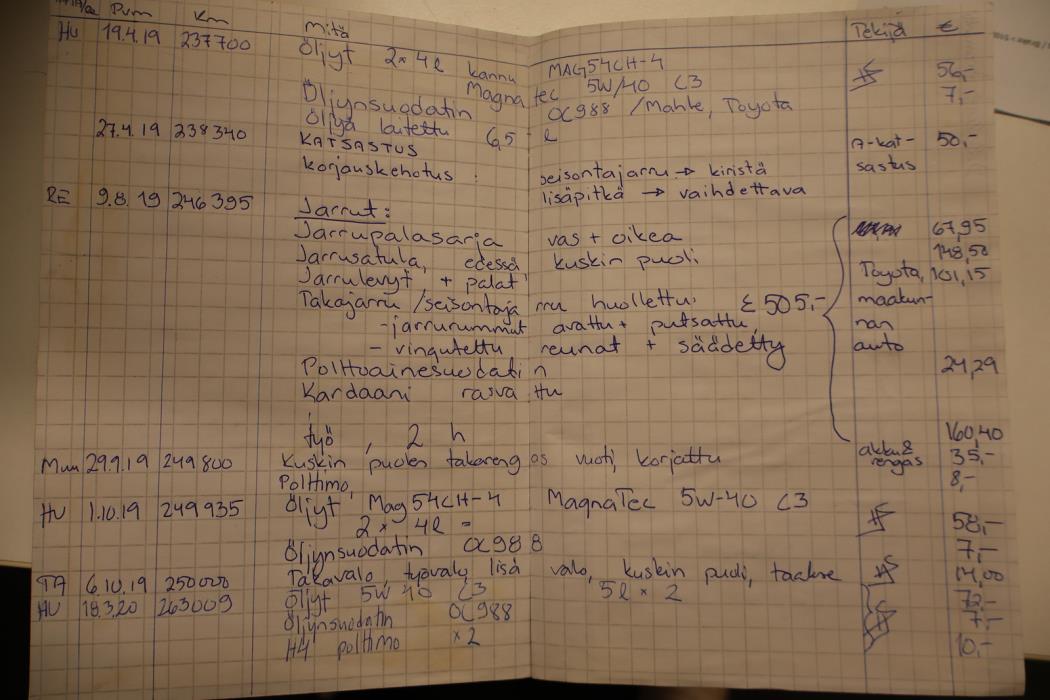 Pvm Km Mitä Tekijä €
HU 19.4.19 237700 Öljyt 2x4l kannu MAG54CH-4 56,-
Magnatec 5W/40 C3 7,-
Öljynsuodatin OC988 /Mahle, Toyota
Öljyä laitettu 6,5 l
27.4.19 238340 KATSASTUS A-kat- 50,-
korjauskehotus : seisontajarru → kiristä sastus
lisäpitkä → vaihdettava
RE 9.8.19 246395 Jarrut:
Jarrupalasarja vas + oikea 67,95
Jarrusatula, edessä, kuskin puoli 148,50
Jarrulevyt + palat Toyota, 101,15
Takajarru /seisontajarru huollettu. £ 505,- maakun-
-jarrurummut avattu + putsattu, nan
- vingutettu reunat + säädetty auto
Polttoainesuodatin 24,29
Kardaani rasvattu
työ, 2 h 160,40
Muu 29.9.19 249800 Kuskin puolen takarengas vuoti, korjattu akku& rengas 35,-
Polttimo, 8,-
HU 1.10.19 249935 Öljyt Mag54CH-4 MagnaTec 5W-40 C3
2 x 4l = 58,-
Öljynsuodatin OC988 7,-
TA 6.10.19 250000 Takavalo, työvalo, lisä valo, kuskin puoli, taakse 14,00
HU 18.3.20 263009 Öljyt 5W40 C3 5l x 2 72,-
Öljynsuodatin OC988 7,-
H4 polttimo x2 10,-